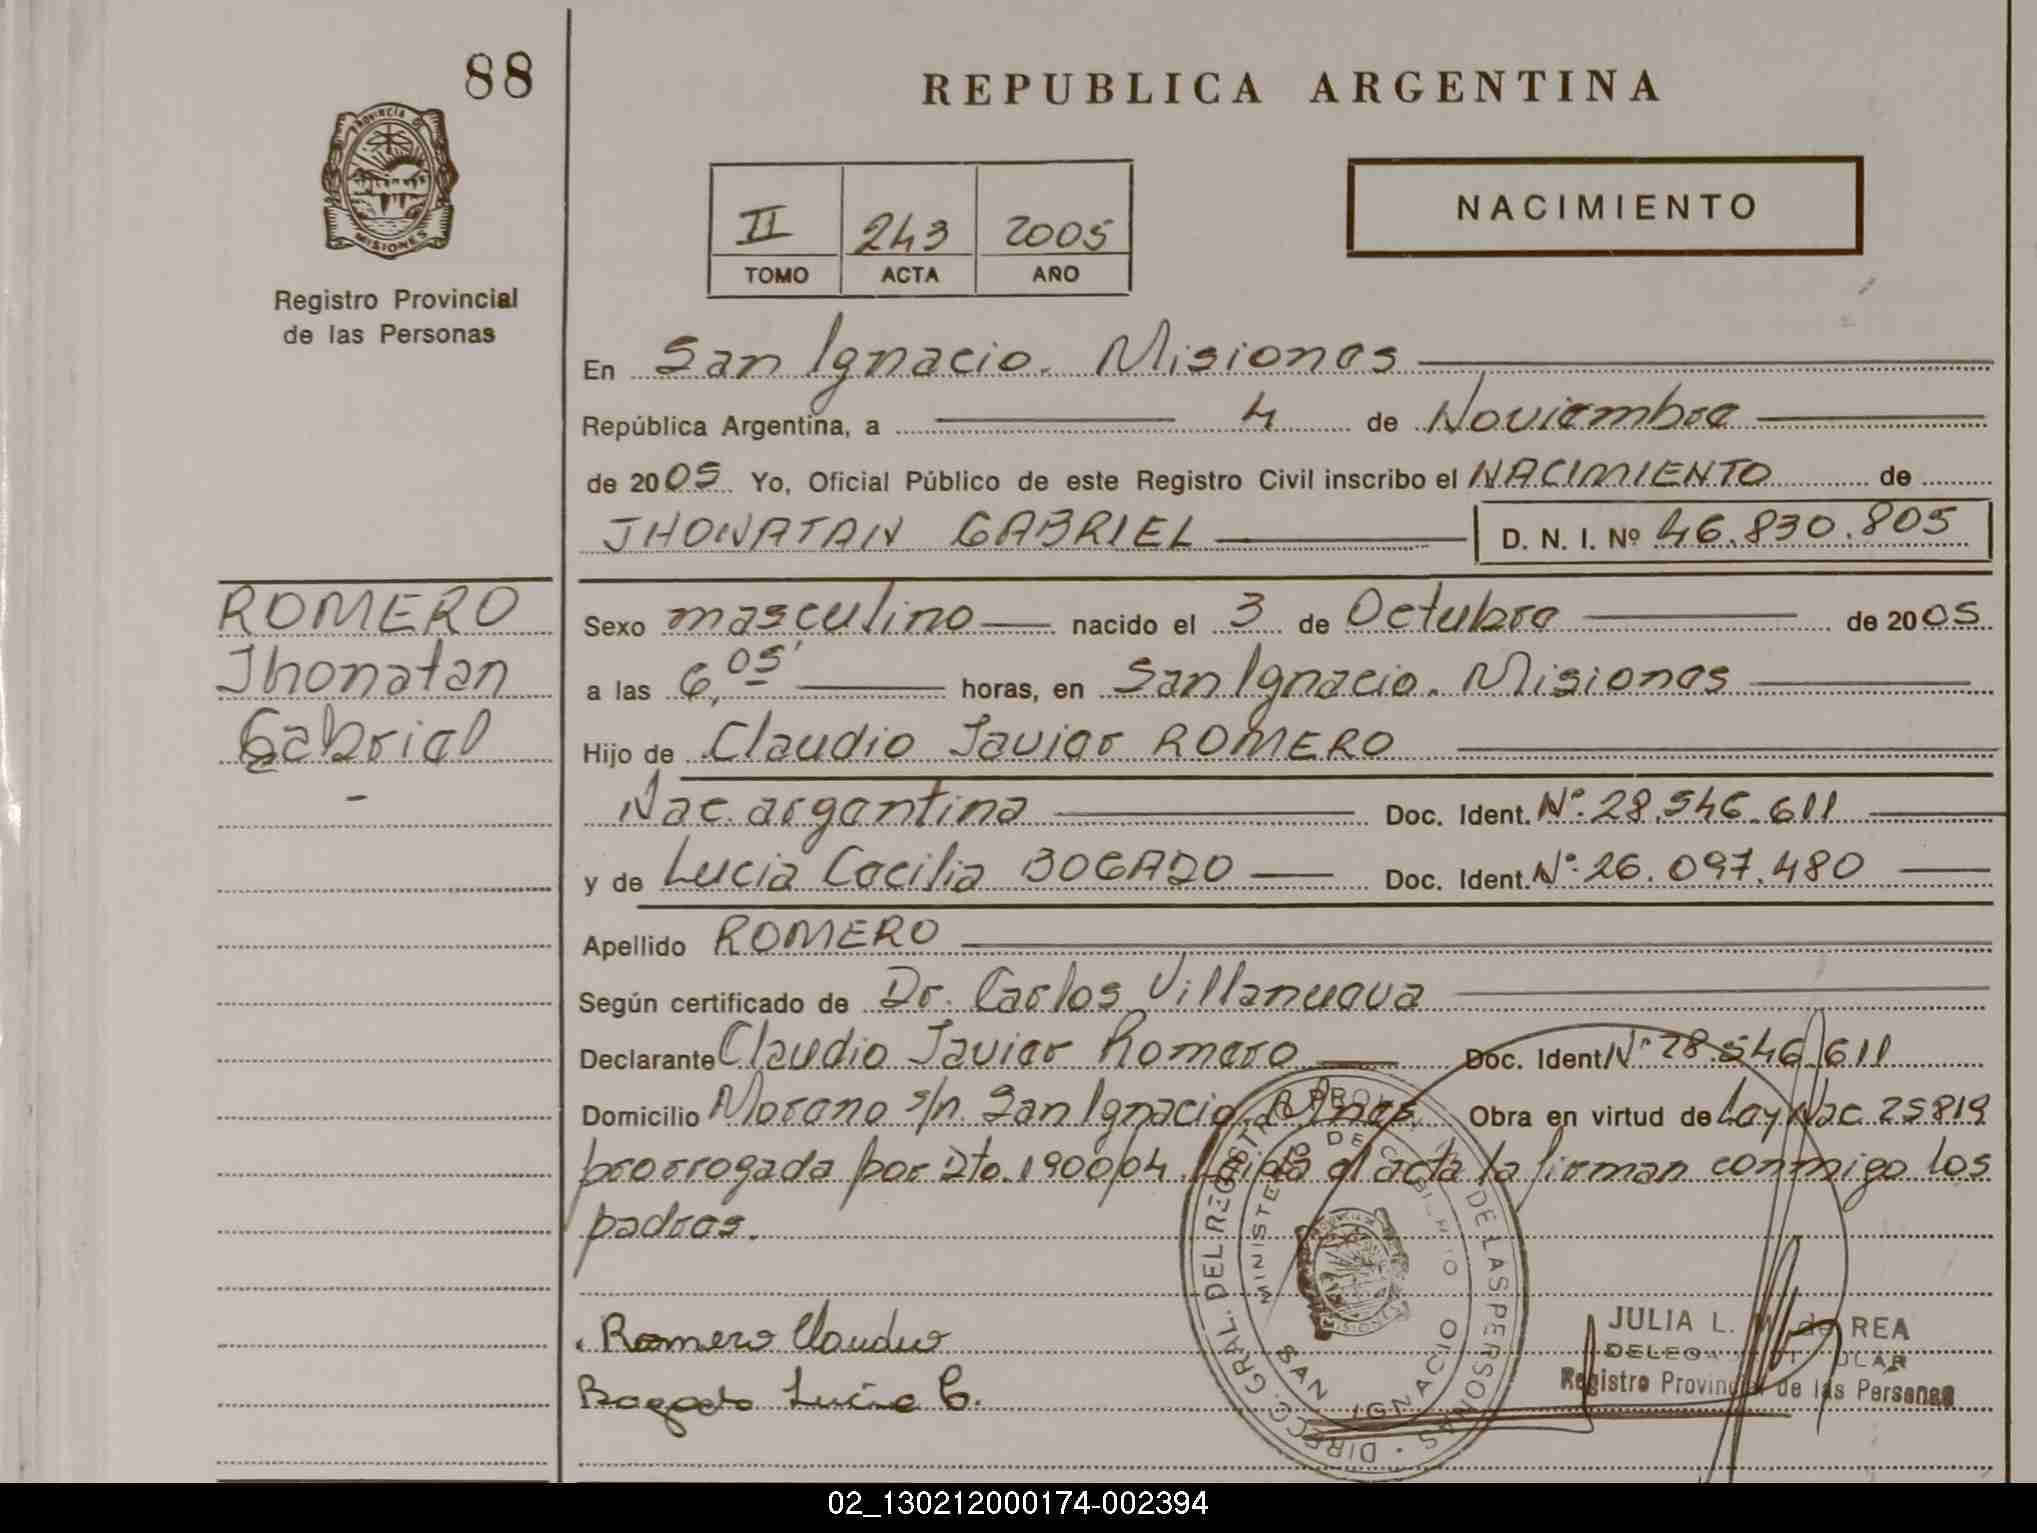 88
REPUBLICA ARGENTINA
PROVINCIA DE
MISIONES
Registro Provincial
de las Personas
II 243 2005
TOMO ACTA AÑO
NACIMIENTO
En San Ignacio. Misiones
República Argentina, a 4 de Noviembre
de 2005 Yo, Oficial Público de este Registro Civil inscribo el NACIMIENTO de
JHONATAN GABRIEL D. N. I. Nº 46.830.805
ROMERO
Jhonatan
Gabriel
-
Sexo masculino nacido el 3 de Octubre de 2005
a las 6,05' horas, en San Ignacio. Misiones
Hijo de Claudio Javier ROMERO
Nac. argentina Doc. Ident. Nº: 28.546.611
y de Lucia Cecilia BOGADO Doc. Ident. Nº: 26.097.480
Apellido ROMERO
Según certificado de Dr. Carlos Villanueva
Declarante Claudio Javier Romero Doc. Ident Nº 28.546.611
Domicilio Moreno s/n. San Ignacio, Mnes. Obra en virtud de Ley Nac 25819
prorrogada por Dto. 1900/04. Leida el acta la firman conmigo los
padres.
Romero Claudio
Bogado Lucia C.
DIRECC. GRAL. DEL REGISTRO PROV. DE LAS PERSONAS
MINISTERIO DE GOBIERNO
MISIONES
SAN IGNACIO
JULIA L. M. de REA
Registro Provincial de las Personas
02_130212000174-002394